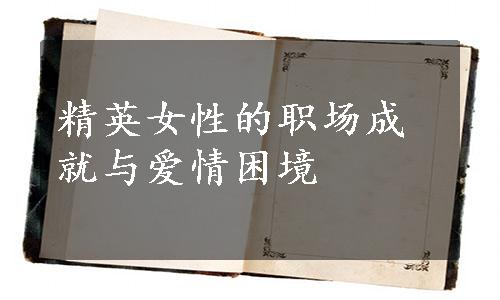 精英女性的职场成
就与爱情困境